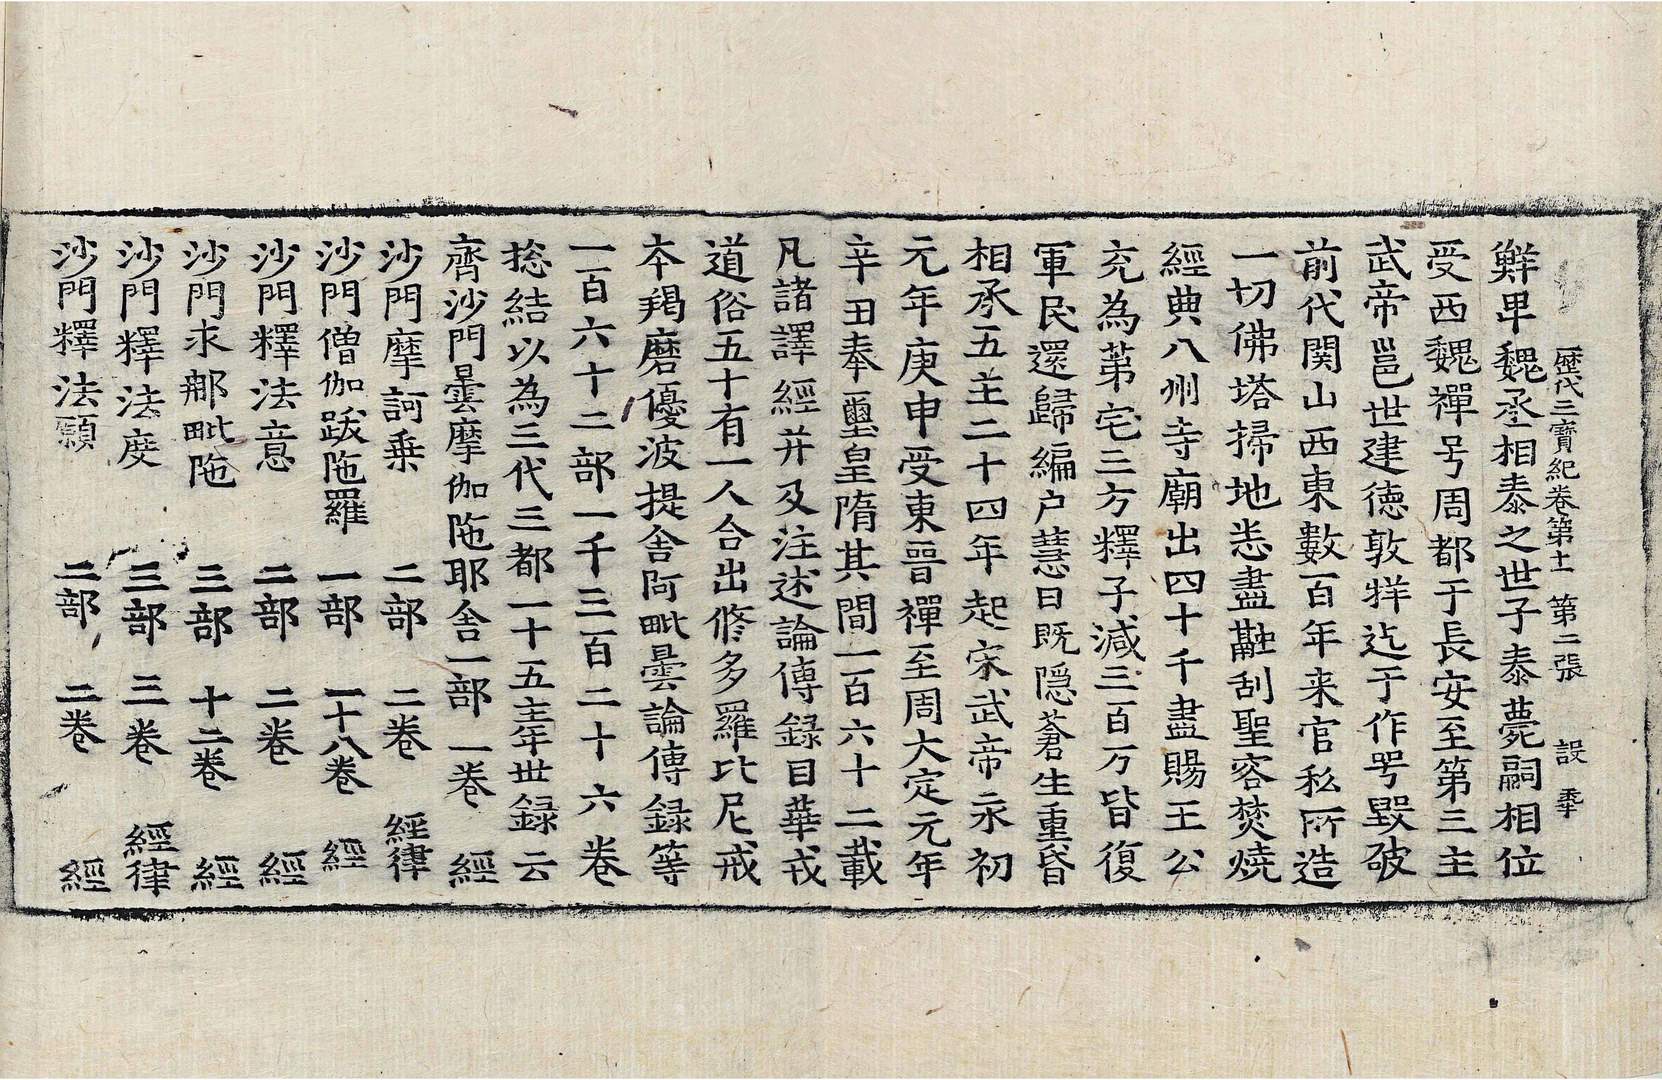 歷代三寶紀卷第十一 第二張 設
鮮卑魏丞相泰之世子泰薨嗣相位
受西魏禪号周都于長安至第三主
武帝邕世建德敦牂迄于作咢毀破
前代関山西東數百年来官私所造
一切佛塔掃地悉盡融刮聖容焚燒
經典八州寺廟出四十千盡賜王公
充為第宅三方釋子減三百万皆復
軍民還歸編户慧日既隱蒼生重昏
相承五主二十四年起宋武帝永初
元年庚申受東晉禪至周大定元年
辛丑奉璽皇隋其間一百六十二載
凡諸譯經并及注述論傳録目華戎
道俗五十有一人合出修多羅比尼戒
本羯磨優波提舍阿毗曇論傳録等
一百六十二部一千三百二十六卷
捴結以為三代三都一十五主年世録云
齊沙門曇摩伽陁耶舍一部 一卷 經
沙門摩訶乗 二部 二卷 經律
沙門僧伽跋陁羅 一部 一十八卷 經
沙門釋法意 二部 二卷 經
沙門求那毗陁 三部 十二卷 經
沙門釋法度 三部 三卷 經律
沙門釋法願 二部 二卷 經